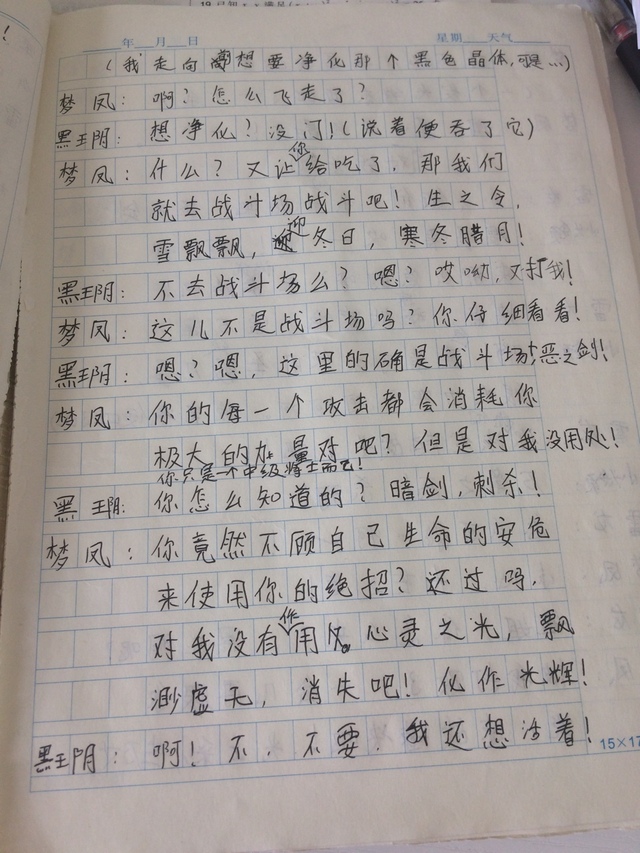 19.已知
年 月 日 星期 天气
(我走向前想要净化那个黑色晶体,可是…)
梦凤:啊?怎么飞走了?
黑王阴:想净化?没门!(说着便吞了它)
梦凤:什么?又让你给吃了,那我们
就去战斗场战斗吧!生之令,
雪飘飘,迎冬日,寒冬腊月!
黑王阴:不去战斗场么?嗯?哎呦,又打我!
梦凤:这儿不是战斗场吗?你仔细看看!
黑王阴:嗯?嗯,这里的确是战斗场,恶之剑!
梦凤:你的每一个攻击都会消耗你
极大的力量对吧?但是对我没用处!
你只是一个中级将士而已!
黑王阴:你怎么知道的?暗剑,刺杀!
梦凤:你竟然不顾自己生命的安危
来使用你的绝招?还过吗,
对我没有作用。心灵之光,飘
渺虚无,消失吧!化作光辉!
黑王阴:啊!不,不要,我还想活着!
15×17